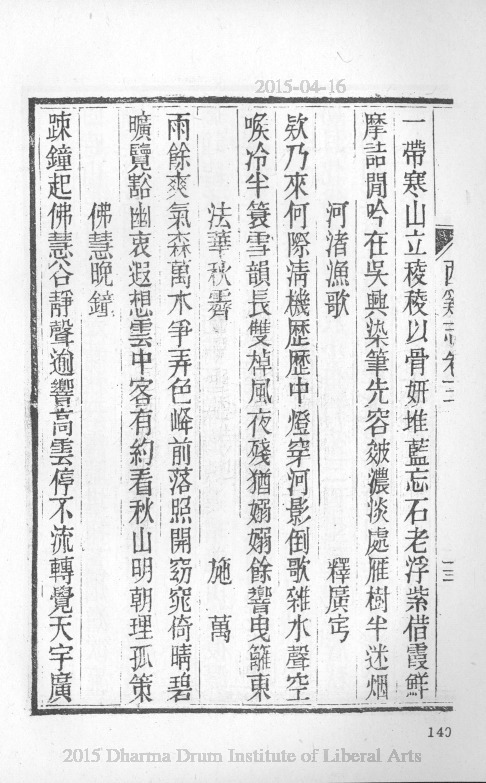 2015-04-16
西谿志卷三 三
一帶寒山立稜稜以骨妍堆藍忘石老浮紫借霞鮮
摩詰閒吟在吳興染筆先容皴濃淡處雁樹半迷烟
河渚漁歌 釋廣
欸乃來何際清機歷歷中燈穿河影倒歌雜水聲空
喉冷半簑雪韻長雙棹風夜殘猶嫋嫋餘響曳籬東
法華秋霽 施萬
雨餘爽氣森萬木爭弄色峰前落照開窈窕倚晴碧
曠覽豁幽衷遐想雲中客有約看秋山明朝理孤策
佛慧晚鐘
疎鐘起佛慧谷靜聲逾響高雲停不流轉覺天宇廣
140
2015 Dharma Drum Institute of Liberal Arts